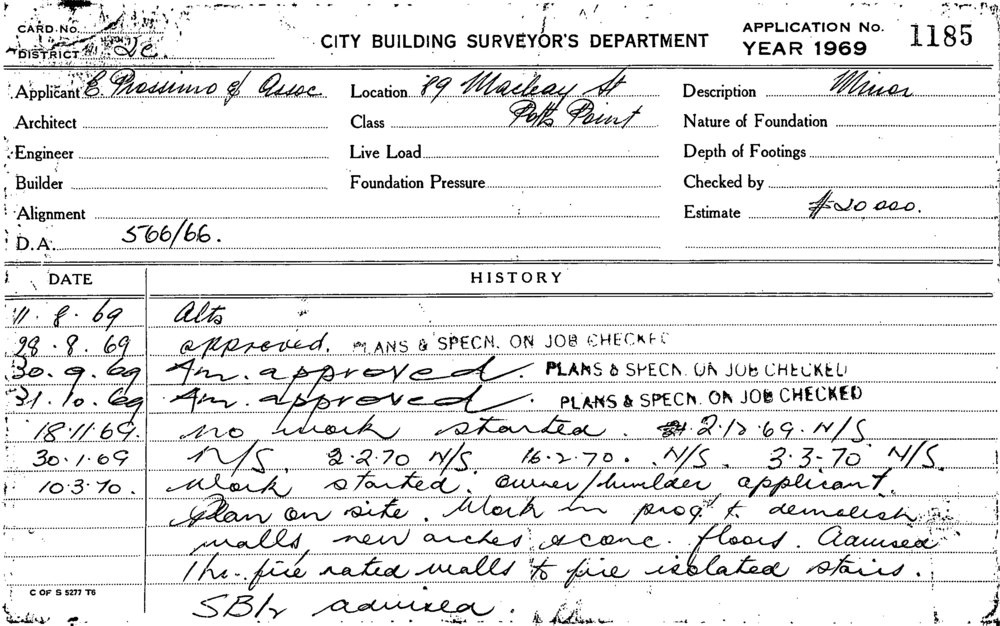 CARD No.
DISTRICT 2c
CITY BUILDING SURVEYOR'S DEPARTMENT
APPLICATION No. 1185
YEAR 1969
Applicant E. Prossimo & Assoc Location 89 Macleay St Description Minor
Architect Class Potts Point Nature of Foundation
Engineer Live Load Depth of Footings
Builder Foundation Pressure Checked by
Alignment Estimate $20 000.
D.A. 566/66.
DATE HISTORY
11. 8. 69 Alts
28. 8. 69 approved. PLANS & SPECN. ON JOB CHECKED
30. 9. 69 Am. approved. PLANS & SPECN. ON JOB CHECKED
31. 10. 69 Am. approved. PLANS & SPECN. ON JOB CHECKED
18.11.69. No work started. 2.12.69. N/S.
30.1.69 N/S. 2.2.70 N/S. 16.2.70. N/S. 3.3.70 N/S.
10.3.70. Work started. Owner/builder applicant.
Plan on site. Work in prog t. demolish
walls, new arches & conc. floors. Advised
1 hr. fire rated walls to fire isolated stairs.
advised.
C OF S 5277 T6